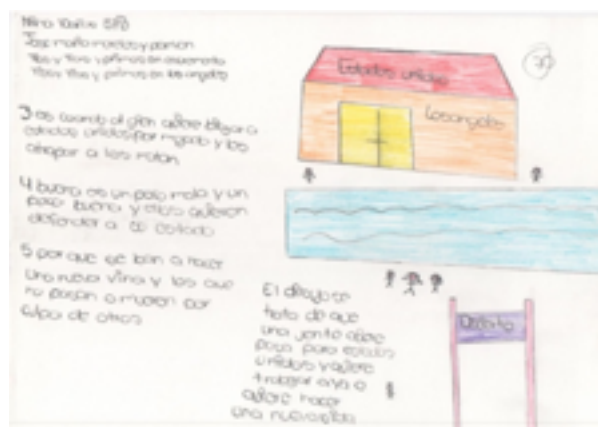 Jose maria morelos y pavon
tios y tios y primos en
tios y tias y primos en los angeles
3 es cuando algien qiere llegar a
estados unidos por mojado y los
atrapar a los matan
4 buena es un poco mala y un
poco buena y ellos quieren
defender a su estado
5 por que se ban a hacer
una nueva vida y los que
no pasan o mueren por
culpa de otros
Estados unidos
Los angeles
El dibujo se
trata de que
una jente qiere
pasar para estados
unidos y qiere
trabajar aya o
qiere hacer
una nueva vida